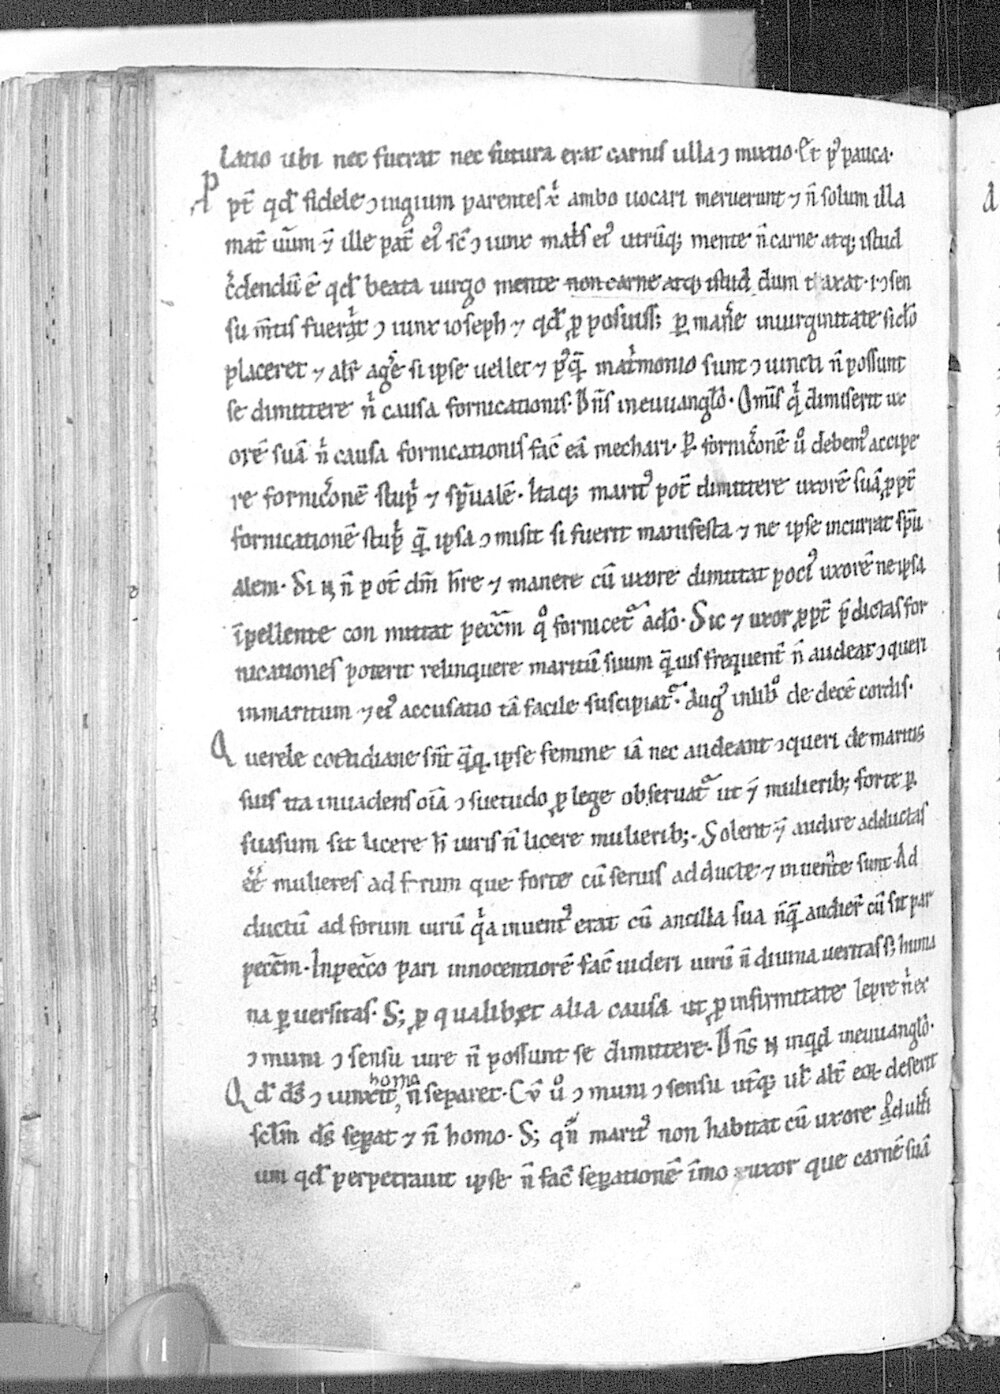 latio ubi nec fuerat nec futura erat carnis ulla ꝯmixtio· Et pꝰ pauca·
Ppt̄ qd̄ fidele ꝯiugium parentes xp̄i ambo uocari meruerunt ⁊ n̄ solum illa
mat̄ uerum ⁊ ille pat̄ eiꝰ sic̄ ꝯiunx matr̄s eiꝰ utrūq; mente n̄ carne atq; istud
c̄dendū ē qd̄ beata uirgo mente non carne atq; istud dum taxat· ꝯsen
su m̄tis fuerat ꝯiunx ioseph ⁊ qd̄ ꝓposuiss; ꝑmanere in uirginitate si dō
placeret ⁊ alr̄ agere si ipse uellet ⁊ pꝰq̄ matͥmonio sunt ꝯiuncti n̄ possunt
se dimittere nͥ causa fornicationis· Dn̄s in euuanglō· Omīs qͥ dimiserit ux
orē suā nͥ causa fornicationis fac̄ eā mechari· ꝑ fornicōnē uͦ debemꝰ accipe
re fornicōnē stupͥ ⁊ sp̄ualē· Itaq; maritꝰ pot̄ dimittere uxorē suā ꝓpt̄
fornicationē stupͥ q̄ ipsa ꝯmisit si fuerit manifesta ⁊ ne ipse incurrat sp̄u
alem· Si n̄ pot̄ dm̄ hr̄e ⁊ manere cū uxore dimittat pociꝰ uxorē ne ipsa
īpellente conmittat pecc̄m qͦ fornicet᷑ a dō· Sic ⁊ uxor ꝓpt̄ p̄dictas for
nicationes poterit relinquere maritū suum q̄uis frequent̄ n̄ audeat ꝯqueri
in maritum ⁊ eiꝰ accusatio tā facile suscipiat᷑· Augꝰ in libͦ de decē cordis·
Querele cottidiane sn̄t q̄q̄ ipse femine iā nec audeant ꝯqueri de maritis
suis ita inuadens oīa ꝯsuetudo ꝓ lege obseruat᷑ ut ⁊ mulierib; forte ꝑ
suasum sit licere h̄ uiris n̄ licere mulierib;· Solent ⁊ audire adductas
eē mulieres ad forum que forte cū seruis adducte ⁊ inuente sunt· Ad
ductū ad forum uirū qͥa inuentꝰ erat cū ancilla sua nūq̄ audier̄ cū sit par
pecc̄m· In pecc̄o pari innocentiorē fac̄ uideri uirū n̄ diuina ueritas s; huma
na ꝑuersitas· S; ꝓ qualibet alia causa ut ꝓ infirmitate lepre nͥ ex
ꝯmuni ꝯsensu uire n̄ possunt se dimittere· Dn̄s inqd̄ in euuanglō·
Qd̄ ds̄ ꝯiunxit, homo n̄ separet· Cū uͦ ꝯmuni ꝯsensu ut̄qꝫ ul̄ alt̄ eoꝝ deserit
scl̄m ds̄ seꝑat ⁊ n̄ homo· S; qn̄ maritꝰ non habitat cū uxore adulti
um qd̄ perpetrauit ipse n̄ fac̄ seꝑationē īmo uxor que carnē suā